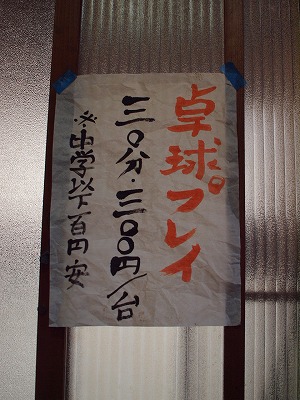 卓球プレイ
三〇分・三〇〇円/台
※中学以下百円安